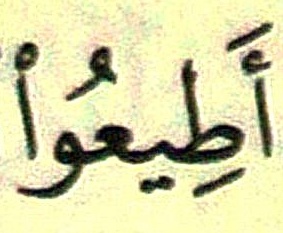 أَطِيعُوا۟